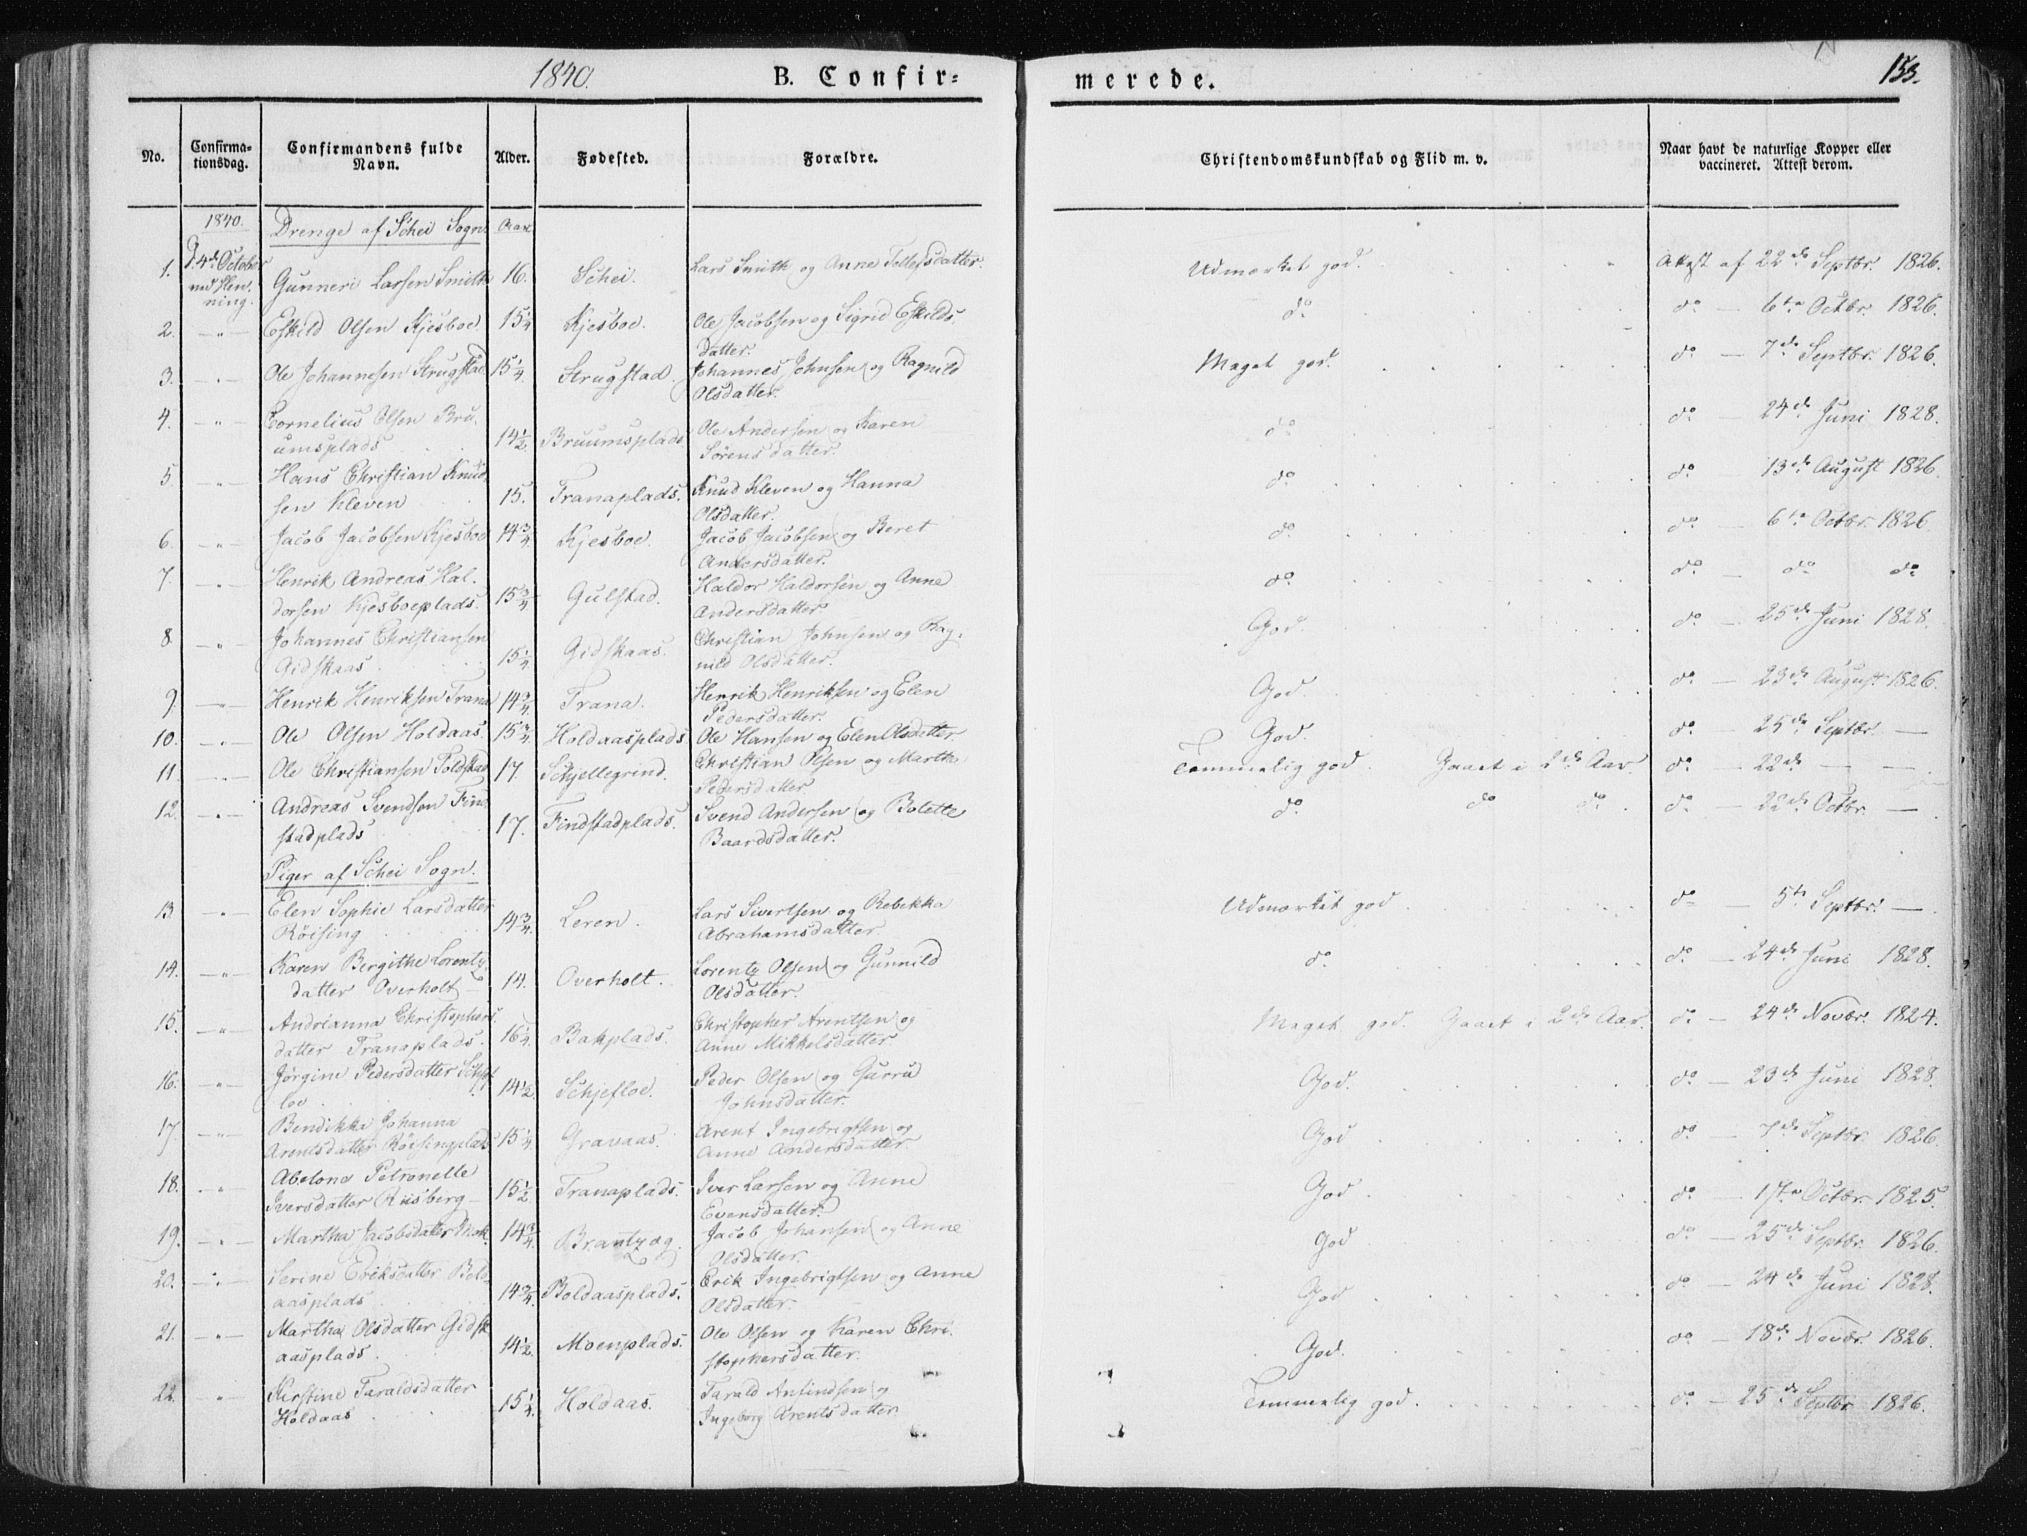 1840.
B. Confir=
merede.
153.
No.
Confirma-
tionsdag.
Confirmandens fulde
Navn.
Alder.
Fødested.
Forældre.
Christendomskundskab og Flid m. v.
Naar havt de naturlige Kopper eller
vaccineret. Attest derom.
1840.
Drenge af Schei Sogn
Aar
1. 4de October Gunneri Larsen Smith 16. Schei. Lars Smith og Anne Tollefsdatter. Udmærket god. Attest af 22de Septbr. 1826.
ved Hen-
ning.
2. -"- Eskild Olsen Kjesboe 15¼ Kjesboe. Ole Jacobsen og Sigrid Eskilds- do. do — 6te Octbr. 1826.
datter.
3. -"- Ole Johannesen Strugstad 15¼. Strugstad. Johannes Johnsen og Ragnild Meget god. do — 7de Septbr. 1826.
Olsdatter.
4. -"- Cornelius Olsen Bru- 14½ Bruumsplads Ole Andersen og Karen do do — 24de Juni 1828.
umsplads Sørensdatter.
5 -"- Hans Christian Knud- 15. Tranaplads. Knud Kleven og Hanna do. do — 13de August 1826.
sen Kleven Olsdatter.
6. -"- Jacob Jacobsen Kjesboe 14¾ Kjesboe. Jacob Jacobsen og Beret do. do — 6te Octbr. 1826.
Andersdatter.
7. -"- Henrik Andreas Hal- 15¾ Gulstad. Haldor Haldorsen og Anne do. do — do do
dorsen Kjesboeplads. Andersdatter.
8. -"- Johannes Christiansen 15¼. Gidskaas. Christian Johnsen og Rag- God. do — 25de Juni 1828.
Gidskaas nild Olsdatter.
9. -"- Henrik Henriksen Trana 14¾. Trana. Henrik Henriksen og Elen God. do — 23de August 1826.
Pedersdatter.
10. -"- Ole Olsen Holdaas. 15¾. Holdaasplads Ole Hansen og Elen Olsdatter God. do — 25de Septbr. —
11. -"- Ole Christiansen Foldstad 17. Schjellegrind. Christian Olsen og Martha Temmelig god. Gaaet i 2de Aar. do — 22de — —
Pedersdatter
12. -"- Andreas Svendsen Find- 17. Findstadplads. Svend Andersen og Bolette do. do do. do — 22de Octbr. —
stadplads Baardsdatter.
Piger af Schei Sogn.
13. -"- Elen Sophie Larsdatter 14¾. Leren. Lars Sivertsen og Rebekka Udmærket god. do — 5te Septbr. —
Røising Abrahamsdatter
14. -"- Karen Bergithe Lorentz- 14. Overholt. Lorentz Olsen og Gunnild do. do. — 24de Juni 1828.
datter Overholt Olsdatter.
15. -"- Andrianna Christophers- 16¼. Bakplads. Christopher Arentsen og Meget god. Gaaet i 2de Aar. do — 24de Novbr. 1824.
datter Tranaplads. Anne Mikkelsdatter
16. -"- Jørgine Pedersdatter Schjef- 14½. Schjefloe. Peder Olsen og Gurru God. do — 23de Juni 1828.
loe. Johnsdatter.
17 -"- Bendikka Johanna 15¼. Gravaas. Arent Ingebrigtsen og God do — 7de Septbr. 1826.
Arentsdatter Røisingplads Anne Andersdatter.
18. -"- Abelone Petronelle 15½ Tranaplads. Iver Larsen og Anne God do — 17de Octbr. 1825.
Iversdatter Riisberg Evensdatter.
19. -"- Martha Jacobsdatter Mok. 14¾. Brantzæg. Jacob Johansen og Anne God do — 25de Septbr. 1826.
Olsdatter.
20. -"- Serine Eriksdatter Bold- 14¾. Boldaasplads. Erik Ingebrigtsen og Anne God do — 24de Juni 1828.
aasplads Olsdatter.
21. -"- Martha Olsdatter Gidsk- 14½. Moenplads. Ole Olsen og Karen Chri- God. do — 18de Novbr. 1826.
aasplads. stophersdatter.
22. -"- Kirstine Taraldsdatter 15¼. Holdaas. Tarald Anfindsen og Temmelig god. do. — 25de Septbr 1826.
Holdaas Ingeborg Arentsdatter